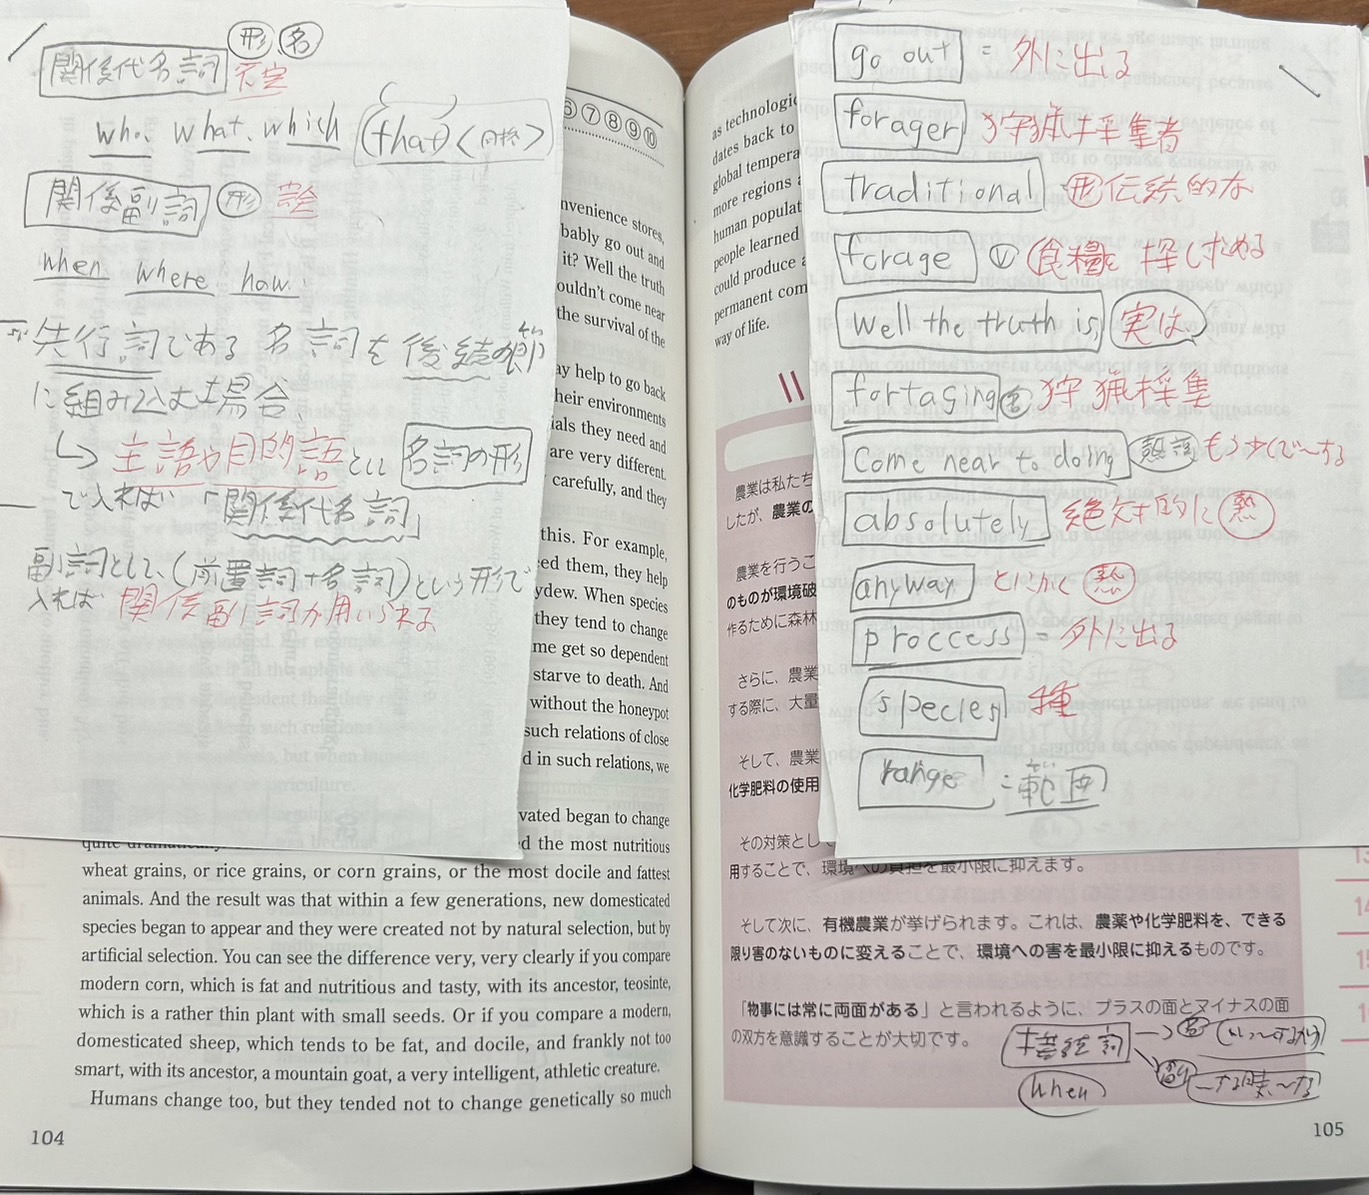 関係代名詞 形 名
不完
who. what. which (that) <同格>
関係副詞 形 完全
when. where how.
先行詞である名詞を後続の節
に組み込む場合
↳ 主語や目的語とし 名詞の形
で入れば 「関係代名詞」
副詞として、(前置詞+名詞)という形で
入れば 関係副詞が用いられる
⑥⑦⑧⑨⑩
nvenience stores,
bably go out and
it? Well the truth
ouldn't come near
the survival of the
ay help to go back
heir environments
ials they need and
are very different.
carefully, and they
this. For example,
ed them, they help
ydew. When species
they tend to change
me get so dependent
starve to death. And
without the honeypot
such relations of close
d in such relations, we
vated began to change
quite dramatically
d the most nutritious
wheat grains, or rice grains, or corn grains, or the most docile and fattest
animals. And the result was that within a few generations, new domesticated
species began to appear and they were created not by natural selection, but by
artificial selection. You can see the difference very, very clearly if you compare
modern corn, which is fat and nutritious and tasty, with its ancestor, teosinte,
which is a rather thin plant with small seeds. Or if you compare a modern,
domesticated sheep, which tends to be fat, and docile, and frankly not too
smart, with its ancestor, a mountain goat, a very intelligent, athletic creature.
Humans change too, but they tended not to change genetically so much
104
as technologic
dates back to
global tempera
more regions a
human populat
people learned
could produce a
permanent com
way of life.
go out = 外に出る
forager 狩猟採集者
traditional 形 伝統的な
forage V 食糧を探し求める
Well the truth is, 実は
fortaging 名 狩猟採集
Come near to doing 熟語 もう少しで〜する
absolutely 絶対的に 熟
anyway とにかく 熟
proccess = 外に出る
species 種
range = 範囲
農業は私たち
したが、農業の
農業を行うこ
のものが環境破
作るために森林
さらに、農業
する際に、大量
そして、農業
化学肥料の使用
その対策とし
用することで、環境への負担を最小限に抑えます。
そして次に、有機農業が挙げられます。これは、農薬や化学肥料を、できる
限り害のないものに変えることで、環境への害を最小限に抑えるものです。
「物事には常に両面がある」と言われるように、プラスの面とマイナスの面
の双方を意識することが大切です。
接続詞 → 名 (いつ〜するか)
when 副 〜する時〜する
105